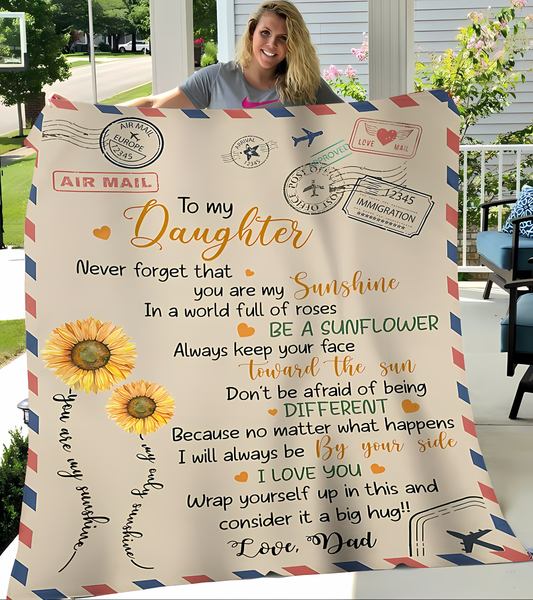 AIR MAIL
EUROPE
12345
ARRIVAL
12345
APPROVED
LOVE MAIL
POST OFFICE
POST OFFICE
12345
IMMIGRATION
AIR MAIL
To my
Daughter
Never forget that
you are my Sunshine
In a world full of roses
BE A SUNFLOWER
Always keep your face
toward the sun
Don't be afraid of being
DIFFERENT
Because no matter what happens
I will always be By your side
I LOVE YOU
Wrap yourself up in this and
consider it a big hug!!
Love, Dad
you are my sunshine
my only sunshine